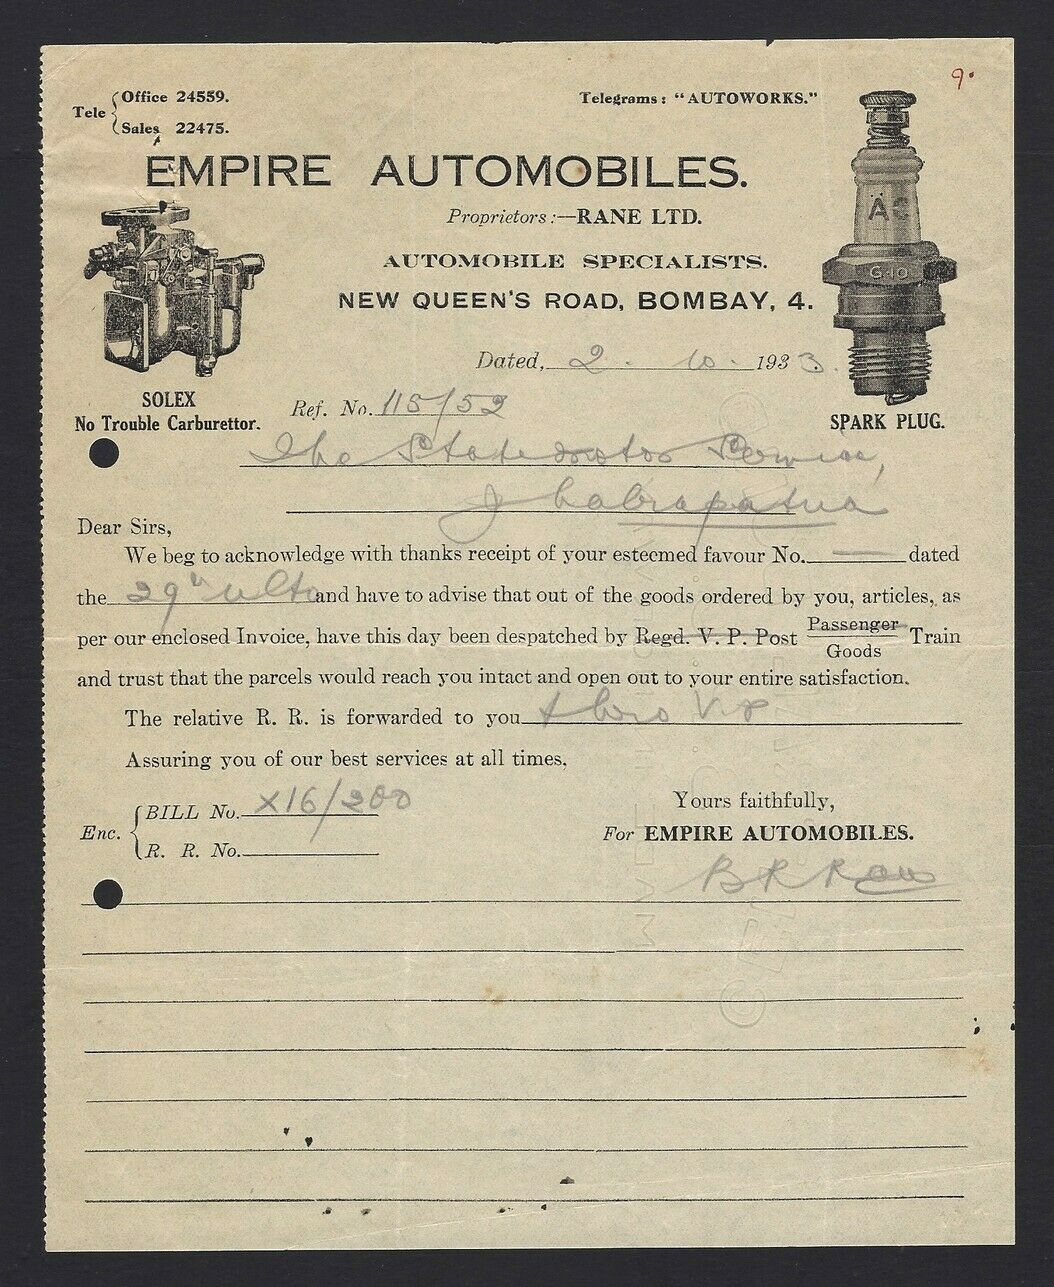 9.
Tele { Office 24559.
Sales 22475.
Telegrams: "AUTOWORKS."
EMPIRE AUTOMOBILES.
Proprietors:—RANE LTD.
AUTOMOBILE SPECIALISTS.
NEW QUEEN'S ROAD, BOMBAY, 4.
AC
G-10
SOLEX
No Trouble Carburettor.
SPARK PLUG.
Dated, 2. 10. 1933.
Ref. No. 115/52
The State Motor Service,
Jhalrapatna
Dear Sirs,
We beg to acknowledge with thanks receipt of your esteemed favour No. — dated
the 29th ulto and have to advise that out of the goods ordered by you, articles, as
per our enclosed Invoice, have this day been despatched by Regd. V. P. Post Passenger Train
Goods
and trust that the parcels would reach you intact and open out to your entire satisfaction.
The relative R. R. is forwarded to you thro V.P
Assuring you of our best services at all times,
Enc. { BILL No. X16/200
R. R. No.
Yours faithfully,
For EMPIRE AUTOMOBILES.